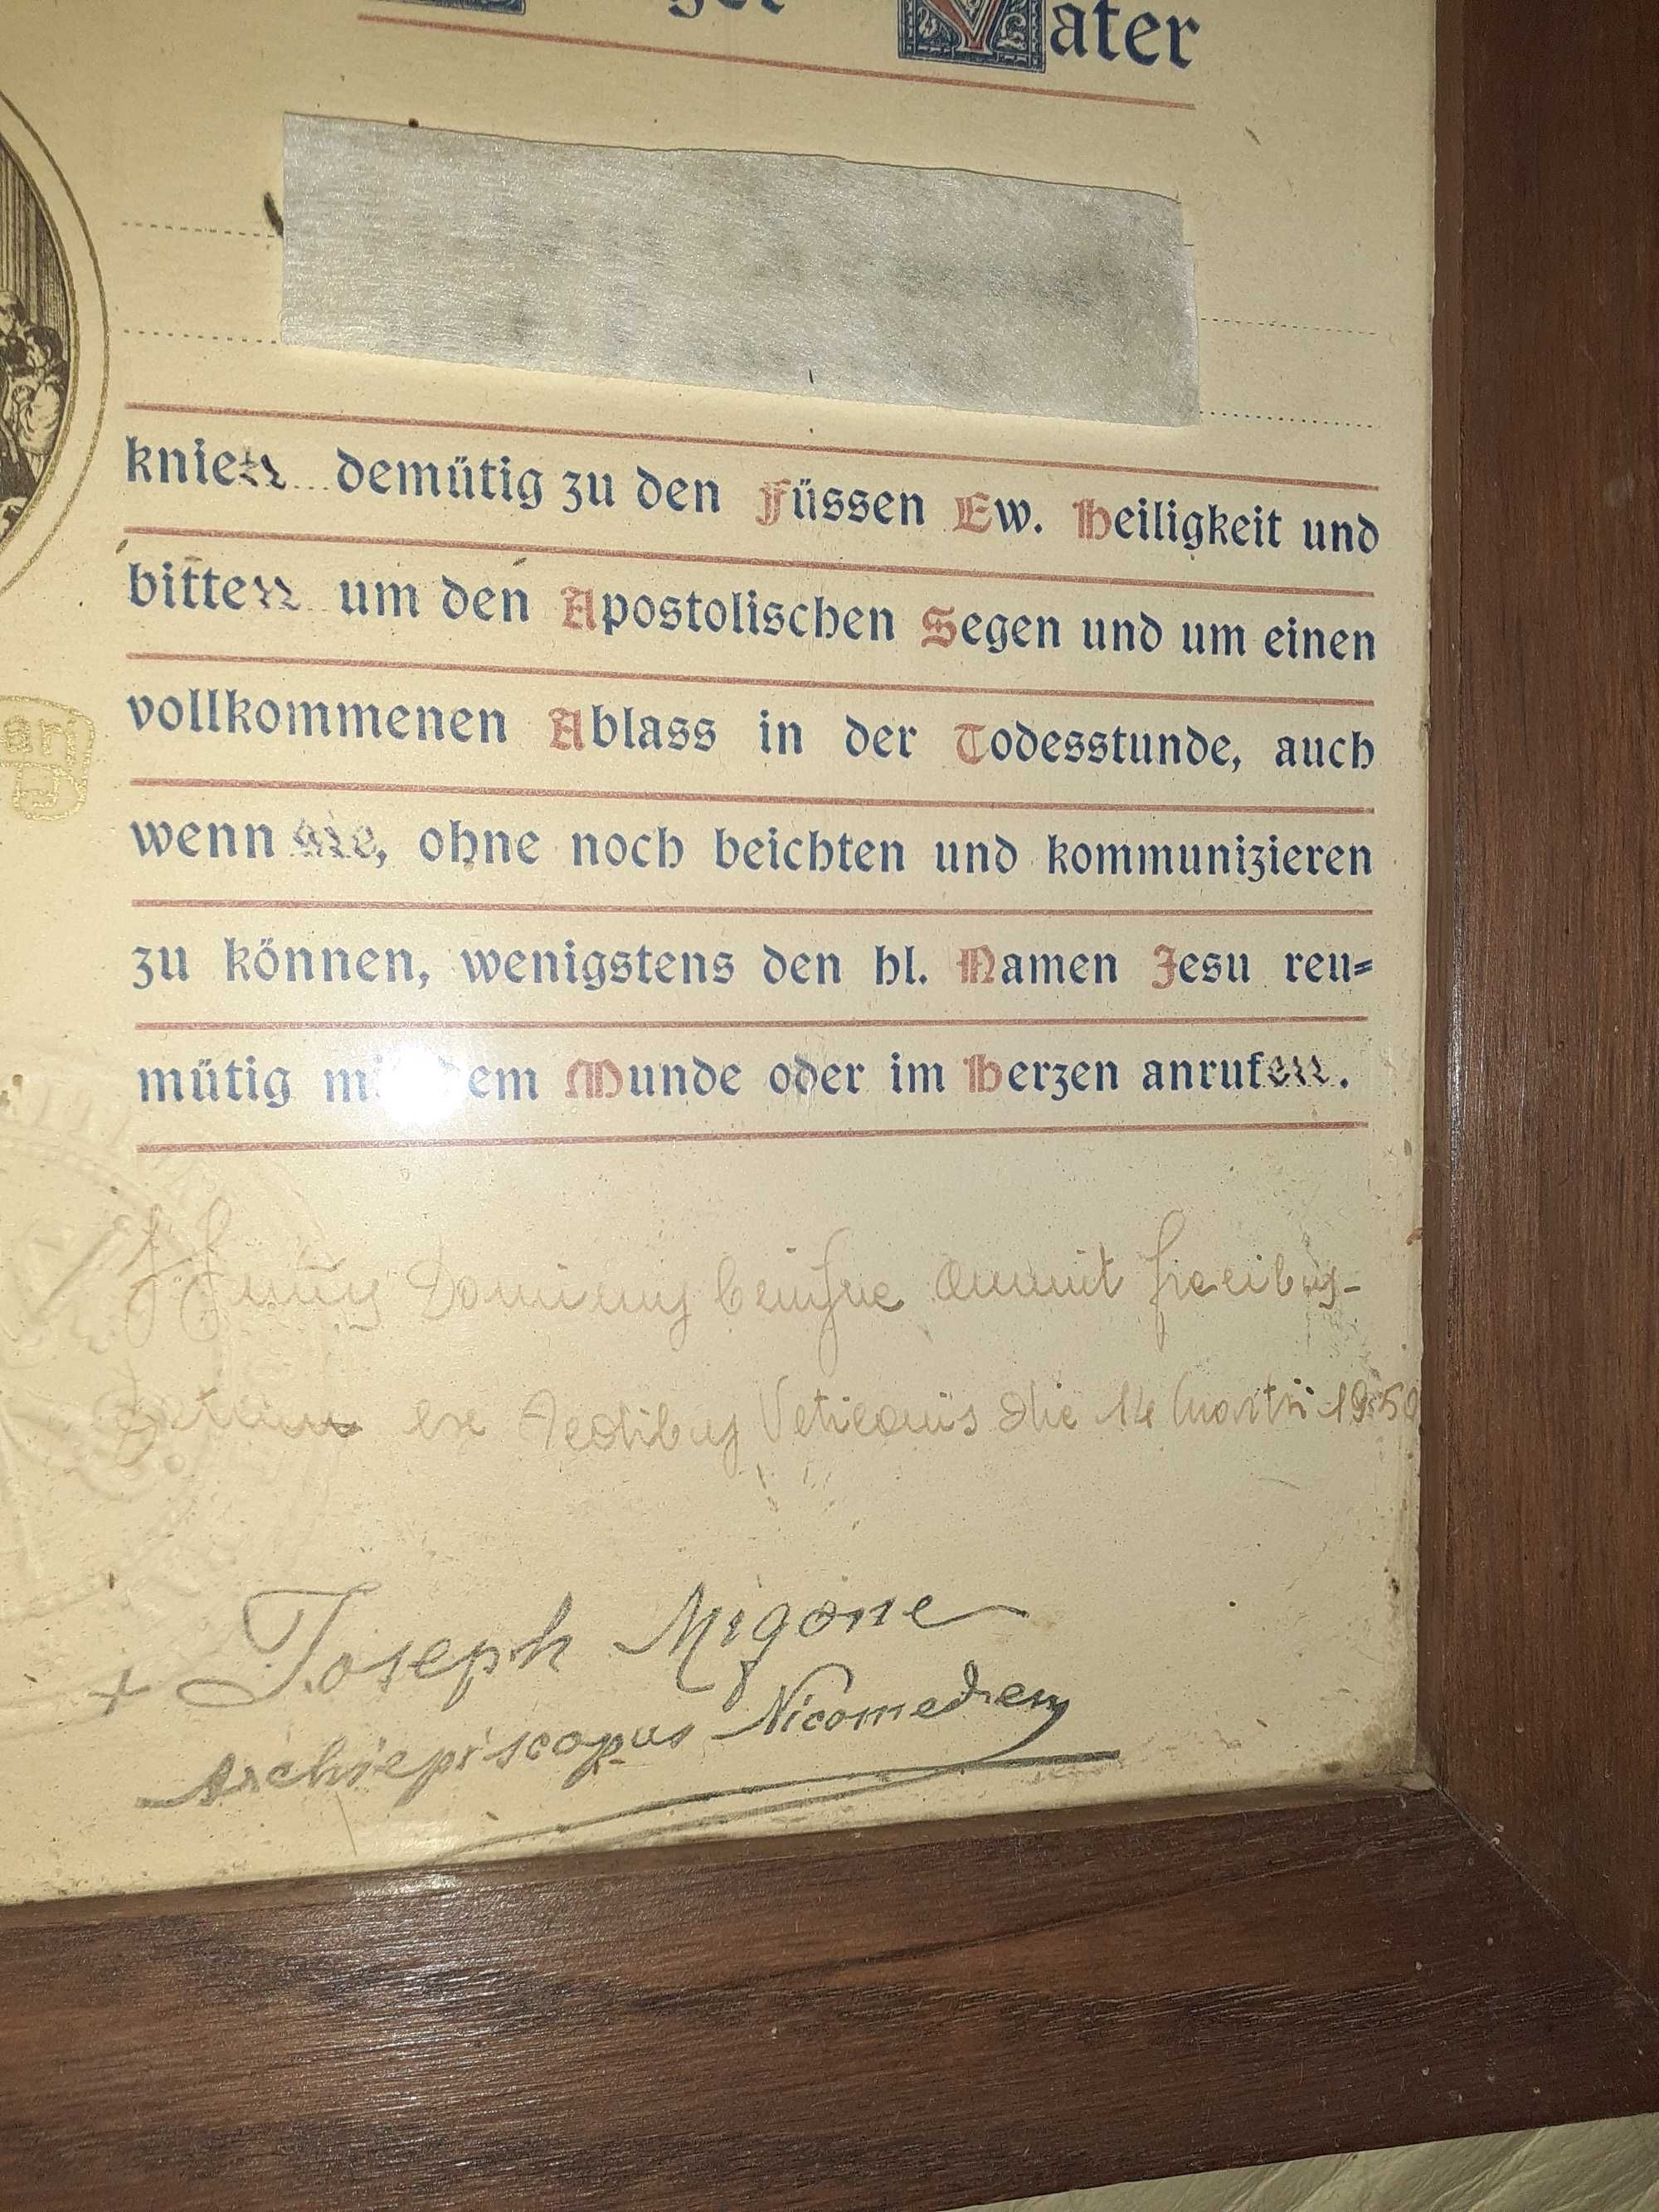 Vater
knien demütig zu den Füssen Ew. Heiligkeit und
bitten um den Apostolischen Segen und um einen
vollkommenen Ablass in der Todesstunde, auch
wenn sie, ohne noch beichten und kommunizieren
zu können, wenigstens den hl. Namen Jesu reu=
mütig mit dem Munde oder im Herzen anrufen.
Dominus
ex Aedibus Vaticanis die 14 1950
+ Joseph Migone
Archiepiscopus Nicomedien